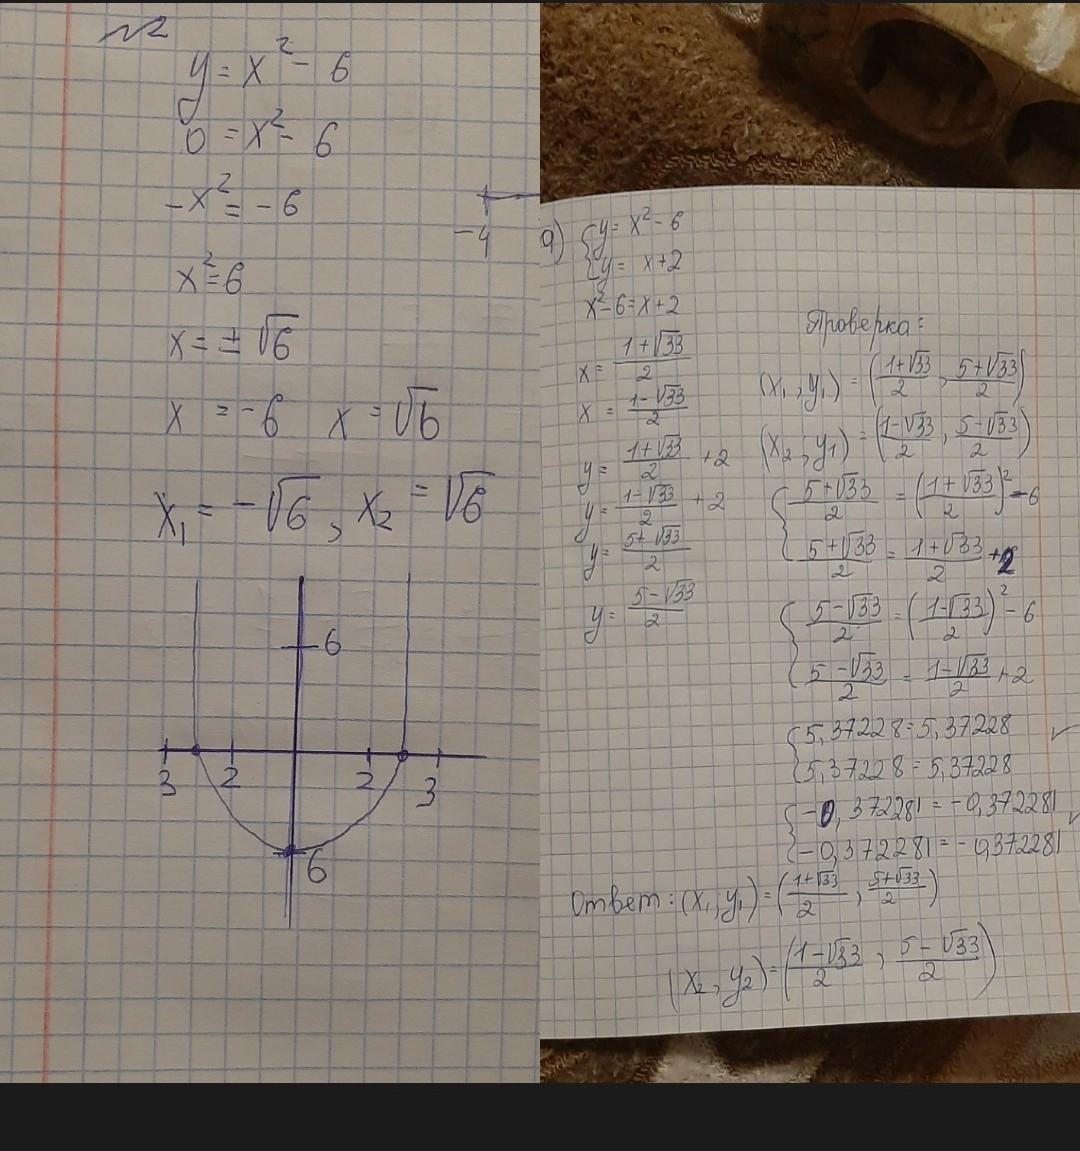 №2
y = x² - 6
0 = x² - 6
-x² = -6
x² = 6
x = ± √6
x = -6 x = √6
x₁ = -√6, x₂ = √6
-4
6
3 2 2 3
6
а) {y = x² - 6
{y = x + 2
x² - 6 = x + 2
x = (1 + √33)/2
x = (1 - √33)/2
y = (1 + √33)/2 + 2
y = (1 - √33)/2 + 2
y = (5 + √33)/2
y = (5 - √33)/2
Проверка:
(x₁, y₁) = ((1 + √33)/2, (5 + √33)/2)
(x₂, y₁) = ((1 - √33)/2, (5 - √33)/2)
{(5 + √33)/2 = ((1 + √33)/2)² - 6
{(5 + √33)/2 = (1 + √33)/2 + 2
{(5 - √33)/2 = ((1 - √33)/2)² - 6
{(5 - √33)/2 = (1 - √33)/2 + 2
{5,37228 = 5,37228 ✓
{5,37228 = 5,37228
{-0,372281 = -0,372281 ✓
{-0,372281 = -0,372281
Ответ: (x₁, y₁) = ((1 + √33)/2, (5 + √33)/2)
(x₂, y₂) = ((1 - √33)/2, (5 - √33)/2)